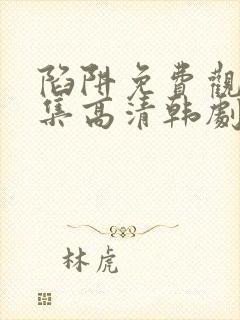 陷阱免費觀
集高清韩劇
林虎